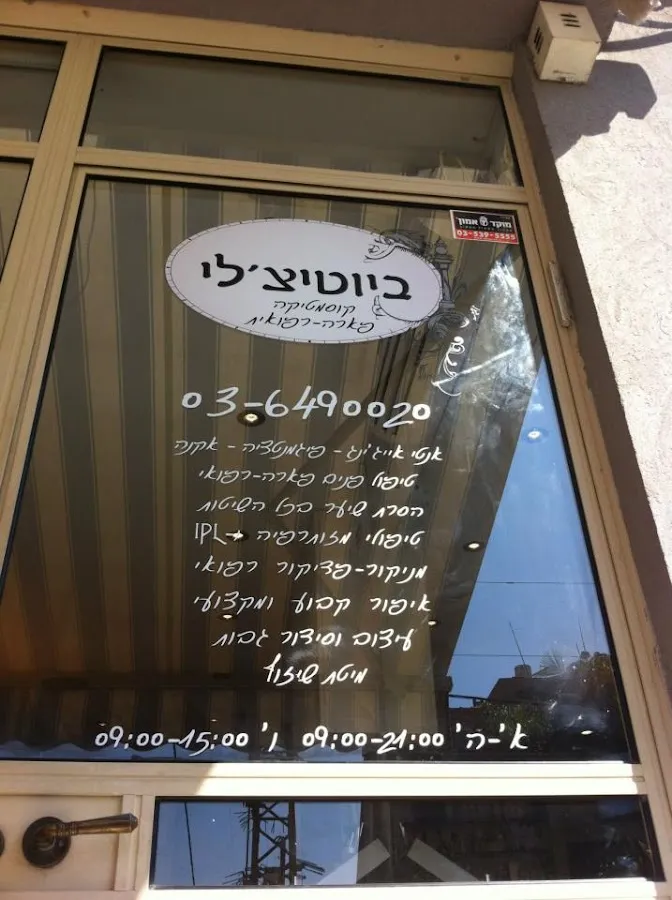 מוקד אמון
03-539-5555
ביוטיצ'לי
קוסמטיקה
פארה-רפואית
03-6490020
אנטי אייג'ינג - פיגמנטציה - אקנה
טיפול פנים פארה-רפואי
הסרת שיער בכל השיטות
טיפולי מזותרפיה ו-IPL
מניקור-פדיקור רפואי
איפור קבוע ומקצועי
עיצוב וסידור גבות
מיטת שיזוף
א'-ה' 09:00-21:00 ו' 09:00-15:00